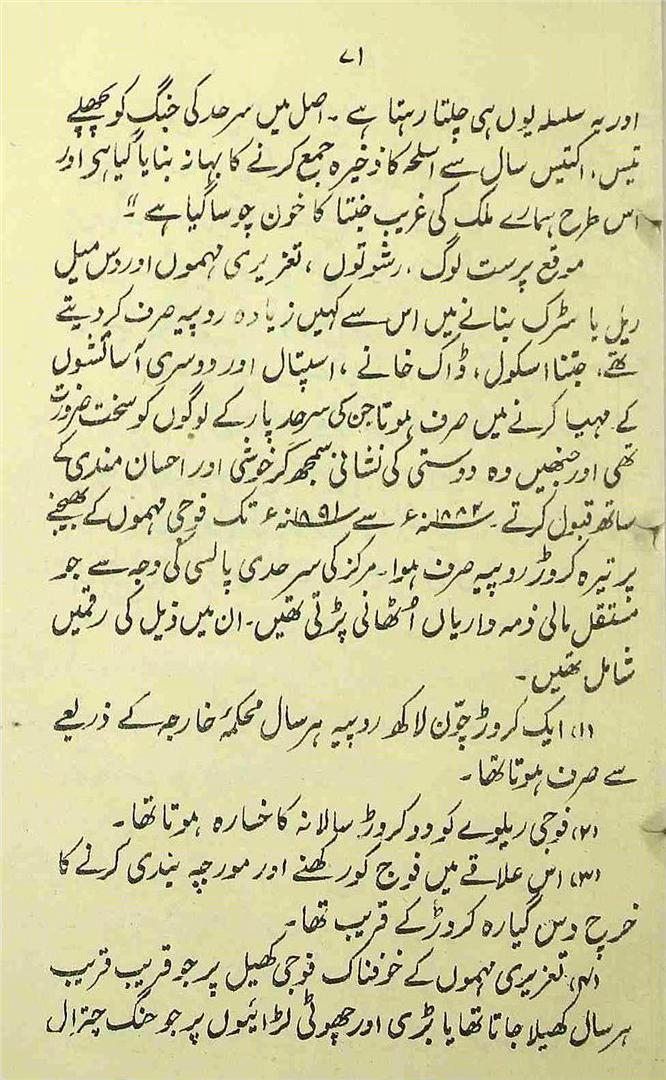 ۷۱
اور یہ سلسلہ یوں ہی چلتا رہتا ہے ۔ اصل میں سرحد کی جنگ کو پچھلے
تیس، اکتیس سال سے اسلحہ کا ذخیرہ جمع کرنے کا بہانہ بنایا گیا ہے اور
اس طرح ہمارے ملک کی غریب جنتا کا خون چوسا گیا ہے "
موقع پرست لوگ، رشوتوں، تعزیری مہموں اور دس میل
ریل یا سڑک بنانے میں اس سے کہیں زیادہ روپیہ صرف کر دیتے
تھے، جتنا اسکول، ڈاک خانے، اسپتال اور دوسری آسائشوں
کے مہیا کرنے میں صرف ہوتا جن کی سرحد پار کے لوگوں کو سخت ضرورت
تھی اور جنھیں وہ دوستی کی نشانی سمجھ کر خوشی اور احسان مندی کے
ساتھ قبول کرتے ۔ ۱۸۸۲ء سے ۱۸۹۱ء تک فوجی مہموں کے بھیجنے
پر تیرہ کروڑ روپیہ صرف ہوا۔ مرکز کی سرحدی پالسی کی وجہ سے جو
مستقل مالی ذمہ داریاں اُٹھانی پڑتی تھیں۔ ان میں ذیل کی رقمیں
شامل تھیں۔
(۱) ایک کروڑ چوّن لاکھ روپیہ ہر سال محکمۂ خارجہ کے ذریعے
سے صرف ہوتا تھا۔
(۲) فوجی ریلوے کو دو کروڑ سالانہ کا خسارہ ہوتا تھا۔
(۳) اس علاقے میں فوج کو رکھنے اور مورچہ بندی کرنے کا
خرچ دس گیارہ کروڑ کے قریب تھا۔
(۴) تعزیری مہموں کے خوفناک فوجی کھیل پر جو قریب قریب
ہر سال کھیلا جاتا تھا یا بڑی اور چھوٹی لڑائیوں پر جو جنگ چترال